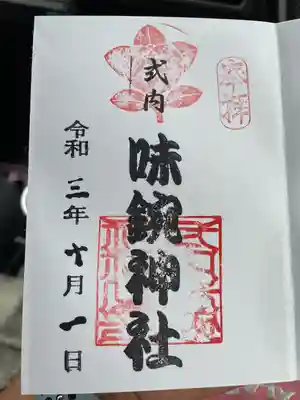 奉拝
式内
味鋺神社
令和三年十月一日